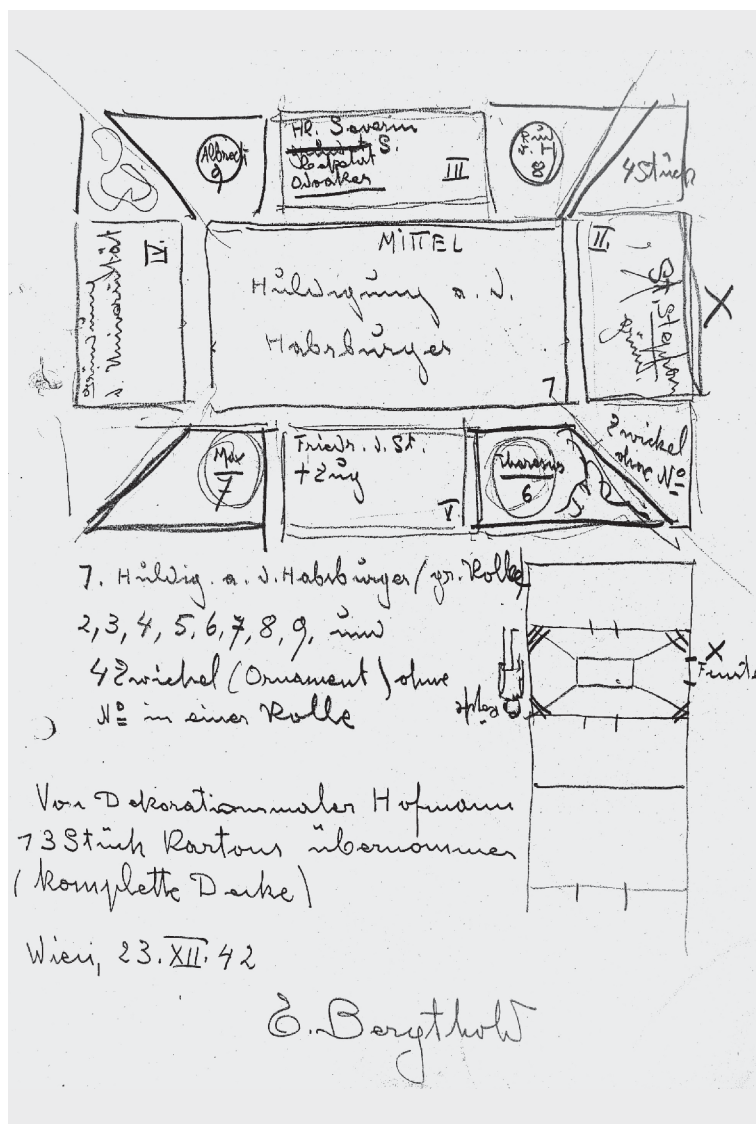 Albrecht
9
Hl. Severin
S.
Odoaker
III
Rud
d. I
8
4 Stück
Gründung
d. Universität
IV.
MITTEL
Huldigung a. d.
Habsburger
1
II.
St. Stephan
X
Max
7
Friedr. d. St.
+ Zug
V
6
Zwickel
ohne No
1. Huldig. a. d. Habsburger (gr. Rolle)
2, 3, 4, 5, 6, 7, 8, 9, und
4 Zwickel (Ornament) ohne
No in einer Rolle
X
Fenster
Von Dekorationsmaler Hofmann
13 Stück Kartons übernommen
(komplette Decke)
Wien, 23. XII. 42
E. Bergthold